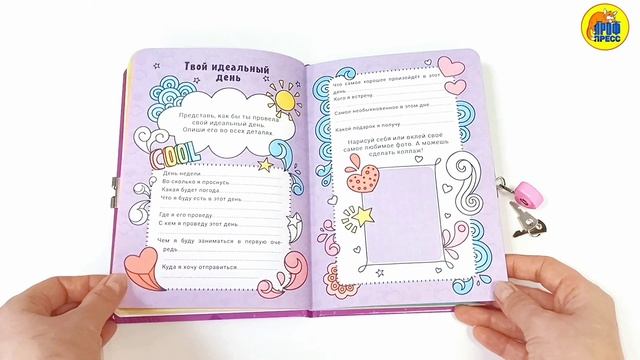 Твой идеальный
день
Представь, как бы ты провела
свой идеальный день.
Опиши его во всех деталях.
COOL
День недели
Во сколько я проснусь
Какая будет погода
Что я буду есть в этот день
Где я его проведу
С кем я проведу этот день
Чем я буду заниматься в первую оче-
редь
Куда я хочу отправиться
Что самое хорошее произойдёт в этот
день
Кого я встречу
Самое необыкновенное в этом дне
Какой подарок я получу
Нарисуй себя или вклей свое
самое любимое фото. А можешь
сделать коллаж!
ПРОФ
ПРЕСС